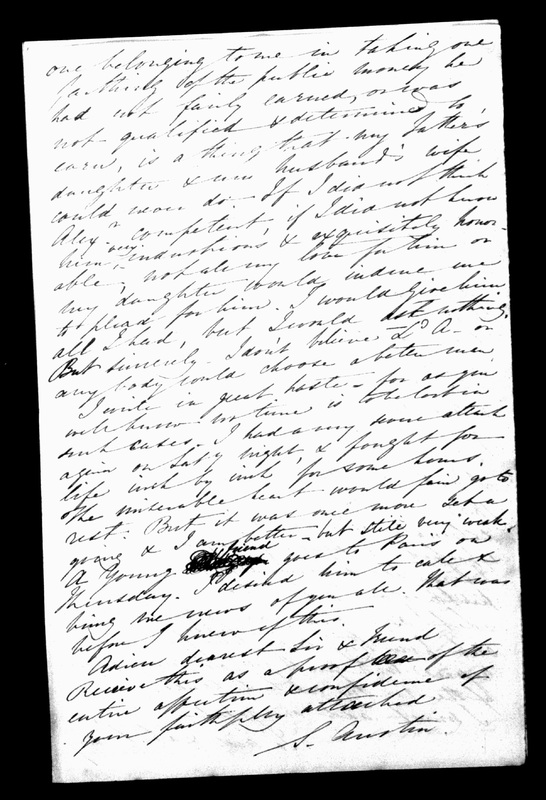 one belonging to me in taking one
farthing of the public money he
had not fairly earned, or was
not qualified & determined to
earn, is a thing that my father's
daughter & my husband's wife
could never do. If I did not think
Alexr competent, if I did not know
him very industrious & exquisitely honor-
able, not all my love for him or
my daughter would induce me
to plead for him. I would give him
all I had, but I would ask nothing.
But sincerely I don't believe Ld A. or
any body could choose a better man.
I write in great haste – for as you
well know no time is to be lost in
such cases. I had a very severe attack
again on Saty night, & fought for
life inch by inch for some hours.
The miserable heart would fain go to
rest. But it was once more set a
going & I am better – but still very weak.
A Young friend goes to Paris on
Thursday. I desired him to call &
bring me news of you all. That was
before I knew of this.
Adieu dearest Sir & friend
Receive this as a proof of the
entire affection & confidence of
your faithfully attached
S. Austin.